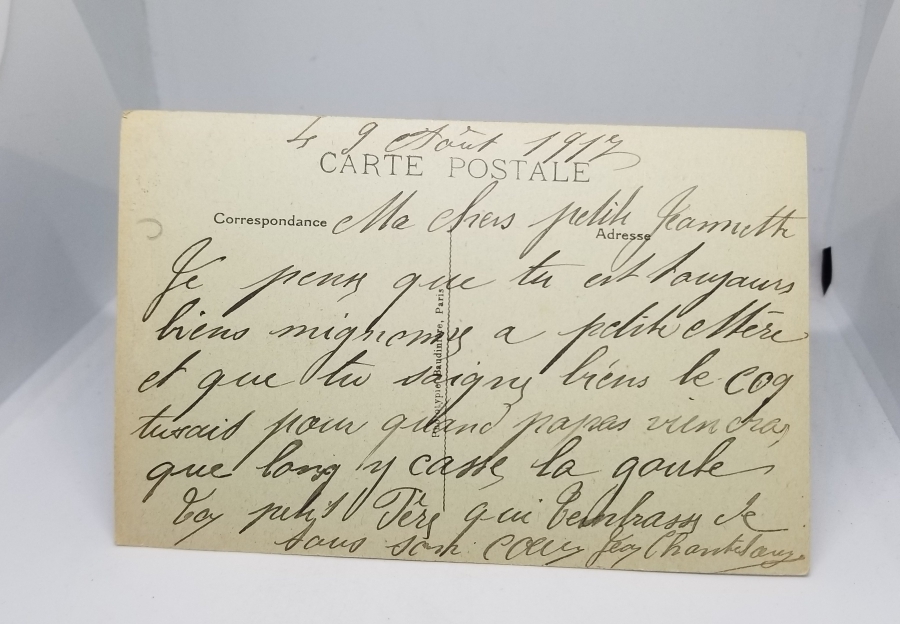 9 Août 1917
CARTE POSTALE
Correspondance
Adresse
Ma chers petite Jeannette
Je pense que tu est toujours
biens mignonne a petite Mère
et que tu soigne biens le coq
tusais pour quand papas viendra
que long y casse la goule
Toy petit Père qui t'embrasse de
tous son cœur
Baudinière, Paris